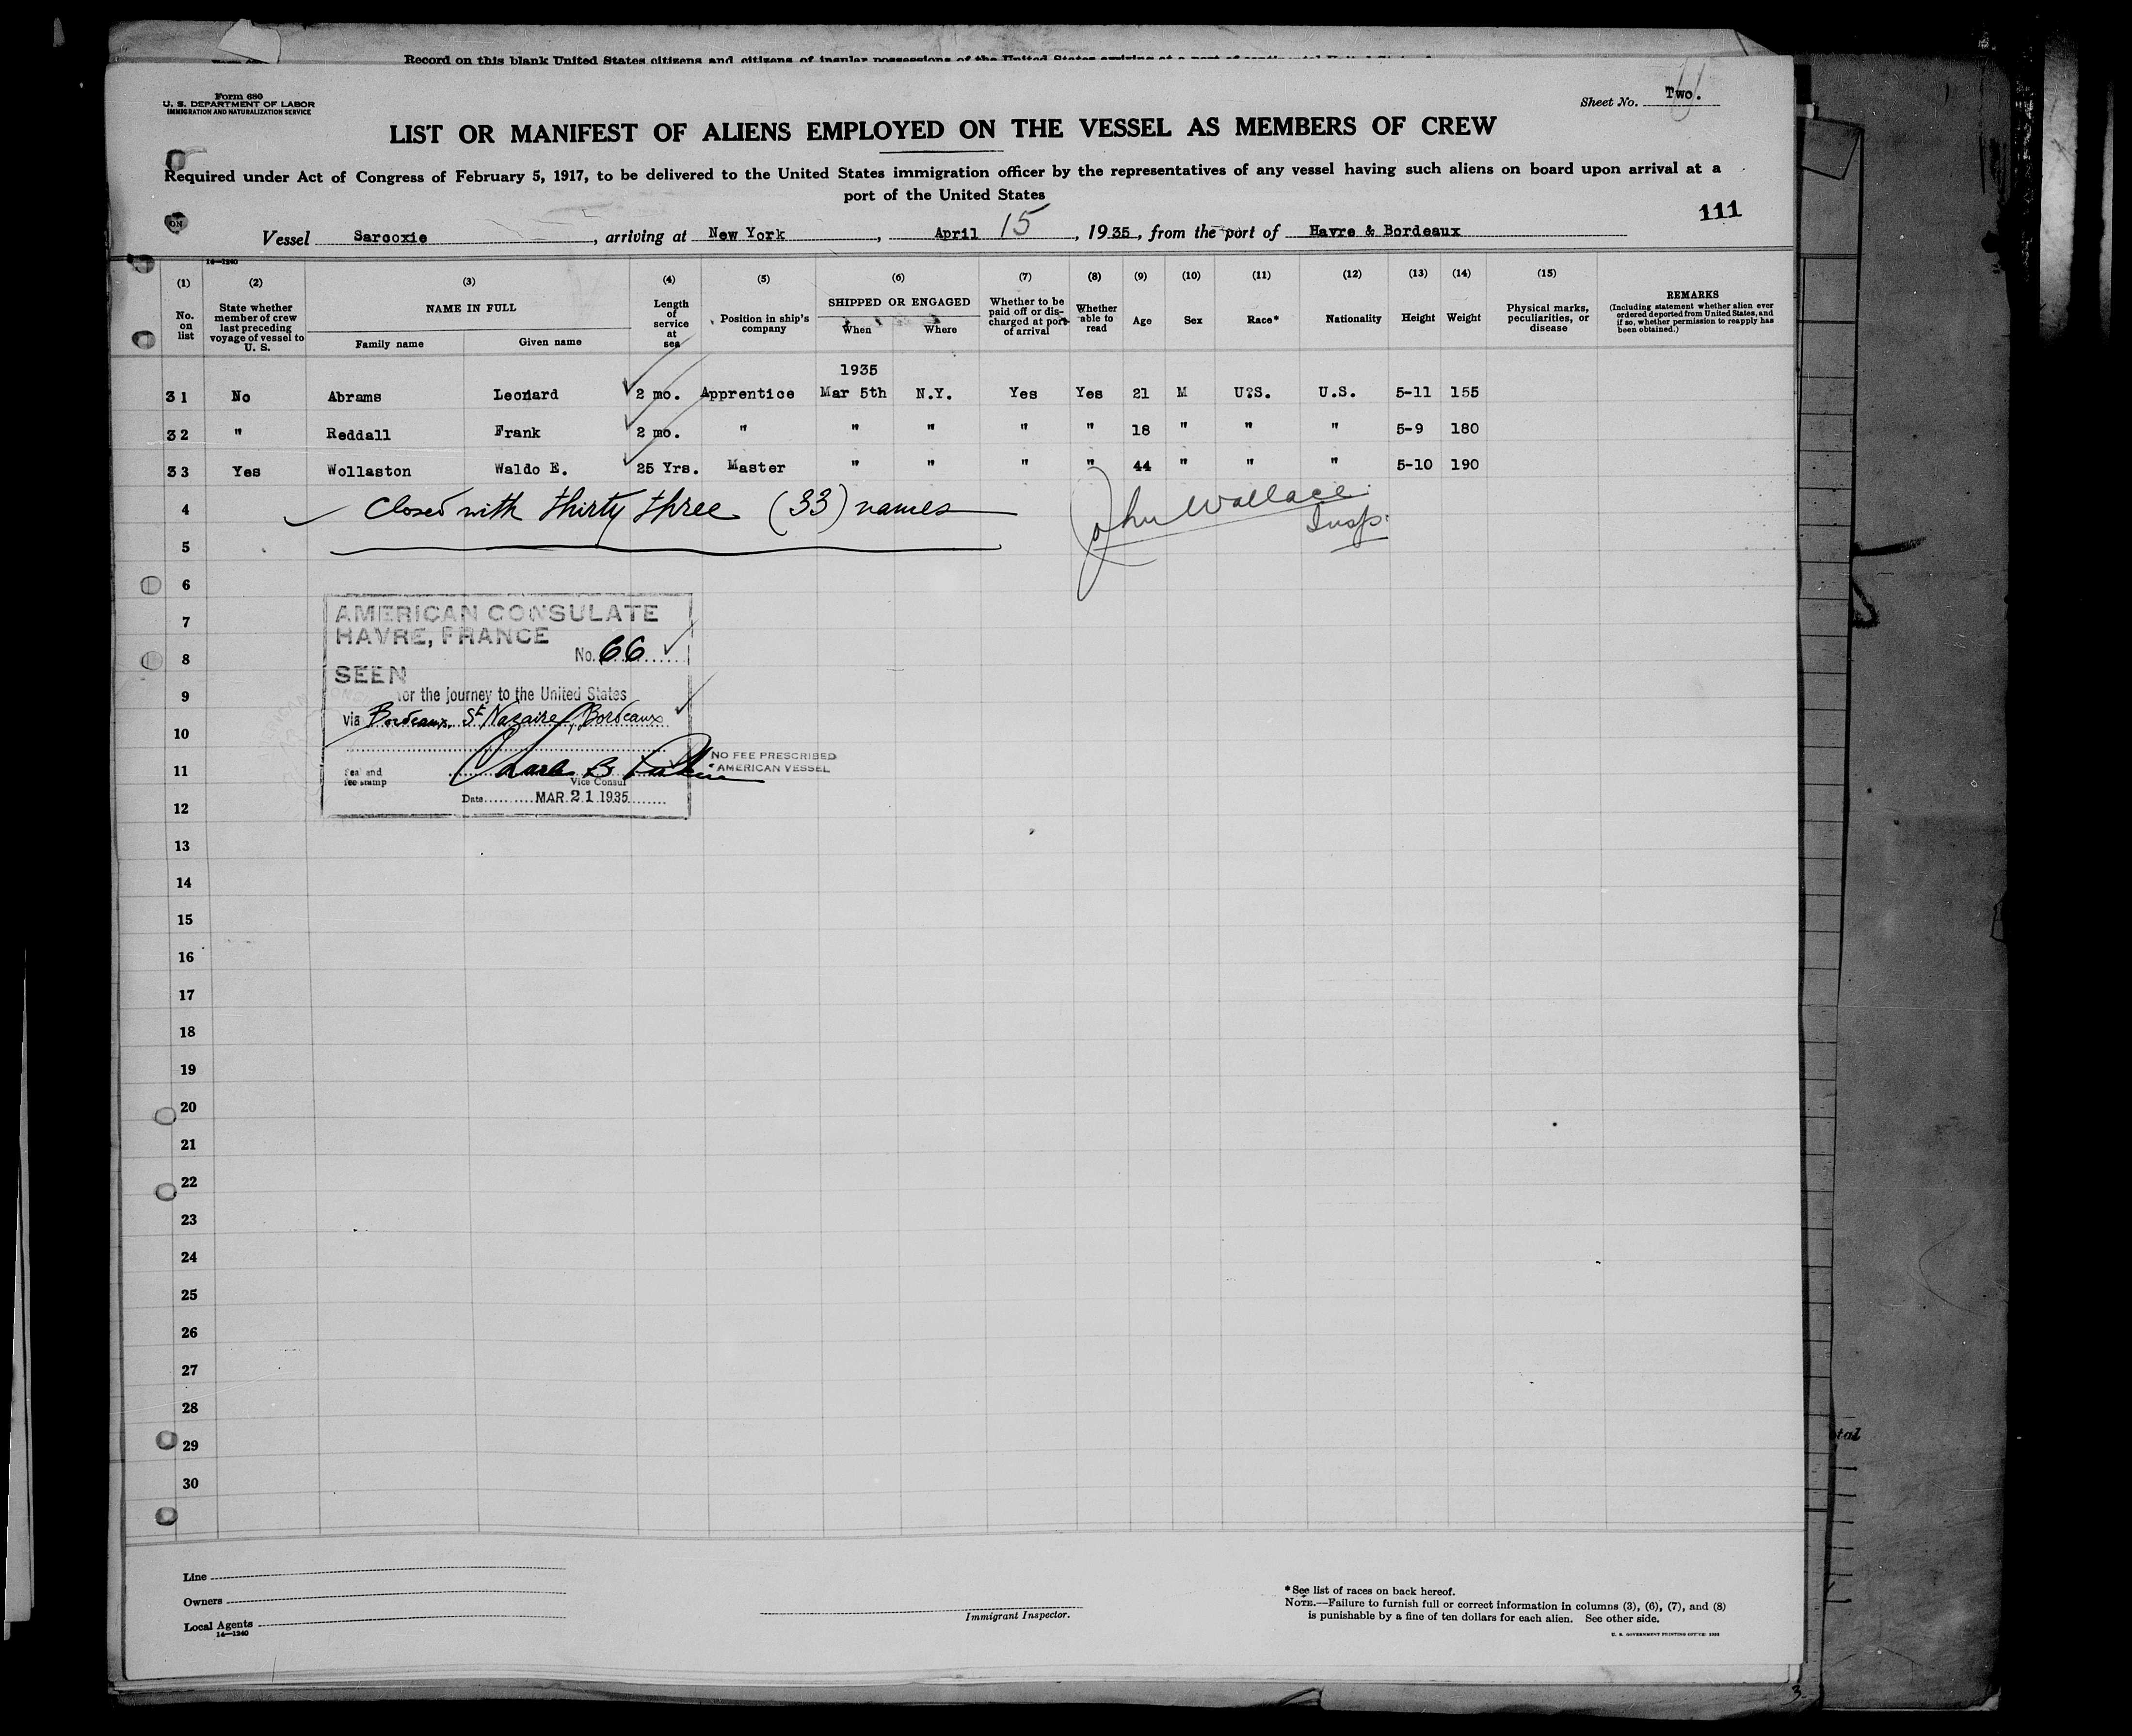 Record on this blank United States citizens and citizens of insular possessions of the United States arriving at a port of continental United States
Form 680
U. S. DEPARTMENT OF LABOR
IMMIGRATION AND NATURALIZATION SERVICE
Sheet No. Two.
LIST OR MANIFEST OF ALIENS EMPLOYED ON THE VESSEL AS MEMBERS OF CREW
Required under Act of Congress of February 5, 1917, to be delivered to the United States immigration officer by the representatives of any vessel having such aliens on board upon arrival at a
port of the United States
111
Vessel Sarcoxie, arriving at New York, April 15, 1935, from the port of Havre & Bordeaux
14—1240
(1) (2) (3) (4) (5) (6) (7) (8) (9) (10) (11) (12) (13) (14) (15)
No. on list
State whether member of crew last preceding voyage of vessel to U. S.
NAME IN FULL
Family name Given name
Length of service at sea
Position in ship's company
SHIPPED OR ENGAGED
When Where
Whether to be paid off or discharged at port of arrival
Whether able to read
Age Sex Race* Nationality Height Weight
Physical marks, peculiarities, or disease
REMARKS
(Including statement whether alien ever ordered deported from United States, and if so, whether permission to reapply has been obtained.)
1935
31 No Abrams Leonard 2 mo. Apprentice Mar 5th N.Y. Yes Yes 21 M U.S. U.S. 5-11 155
32 " Reddall Frank 2 mo. " " " " " 18 " " " 5-9 180
33 Yes Wollaston Waldo E. 25 Yrs. Master " " " " 44 " " " 5-10 190
4 Closed with thirty three (33) names John Wallace
Insp.
5
6
7
8
9
10
11
12
13
14
15
16
17
18
19
20
21
22
23
24
25
26
27
28
29
30
AMERICAN CONSULATE
HAVRE, FRANCE
No. 66
SEEN
for the journey to the United States
via Bordeaux, St Nazaire, Bordeaux
Seal and
fee stamp
Vice Consul
Date MAR 21 1935
NO FEE PRESCRIBED
AMERICAN VESSEL
Line
Owners
Local Agents
14—1240
Immigrant Inspector.
* See list of races on back hereof.
NOTE.—Failure to furnish full or correct information in columns (3), (6), (7), and (8)
is punishable by a fine of ten dollars for each alien. See other side.
tal
3